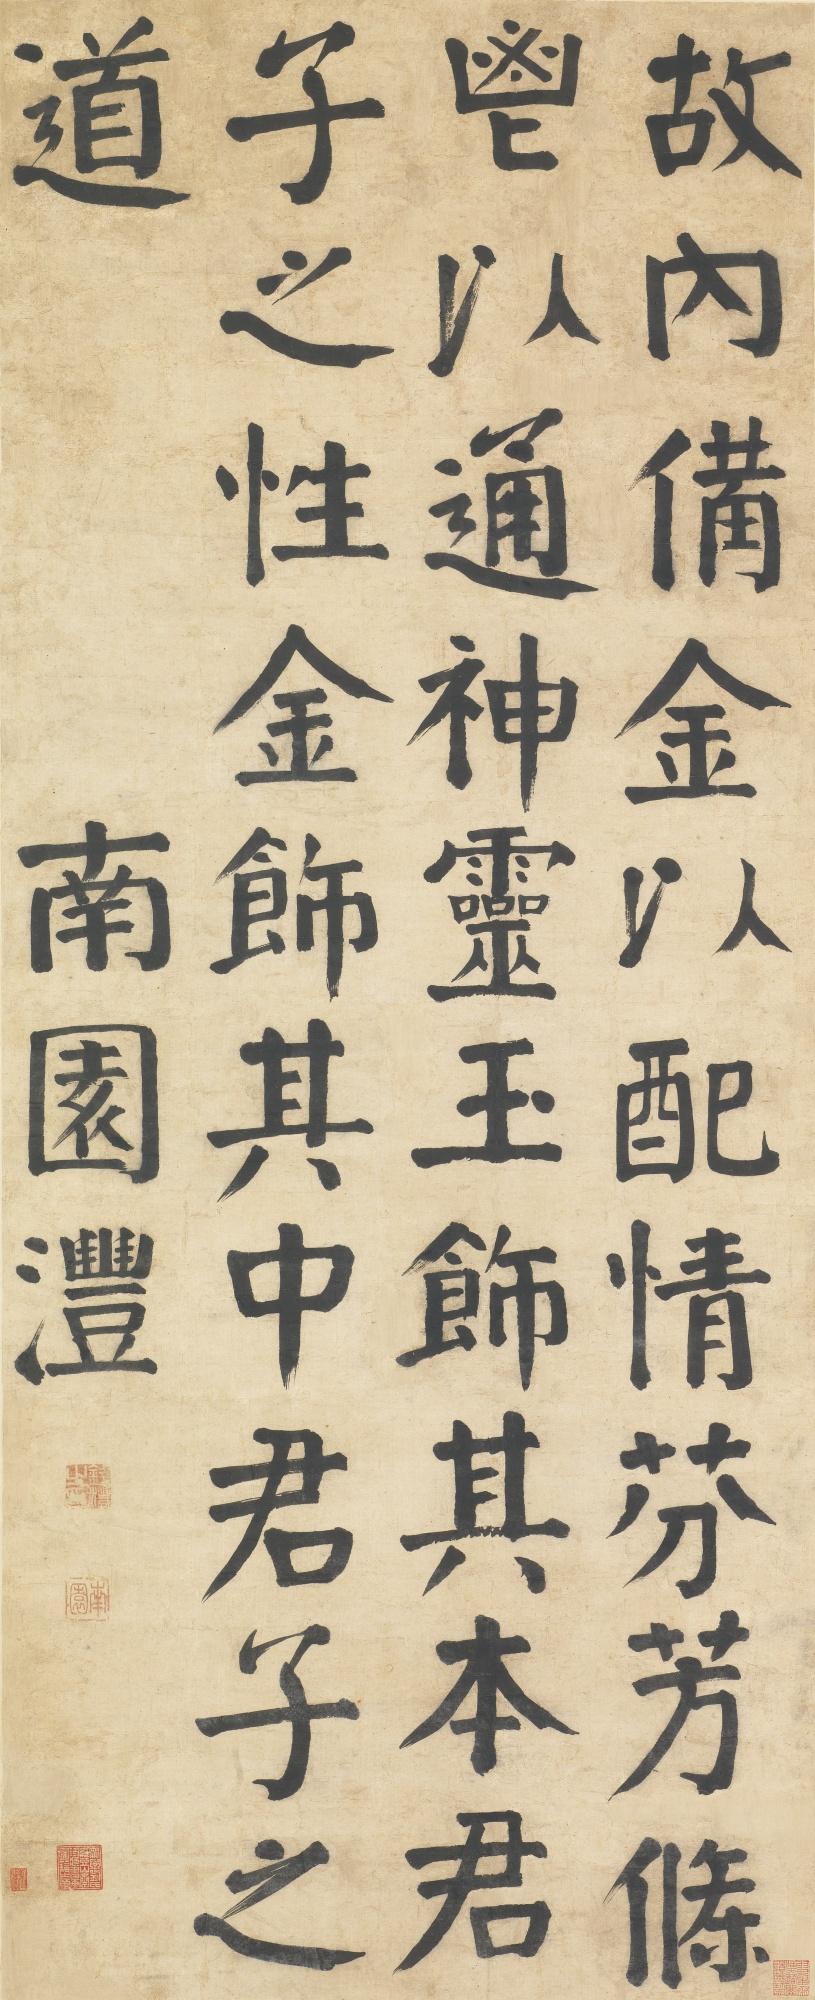 故內備金以配情芬芳條
鬯以通神靈玉飾其本君
子之性金飾其中君子之
道
南園灃
南園